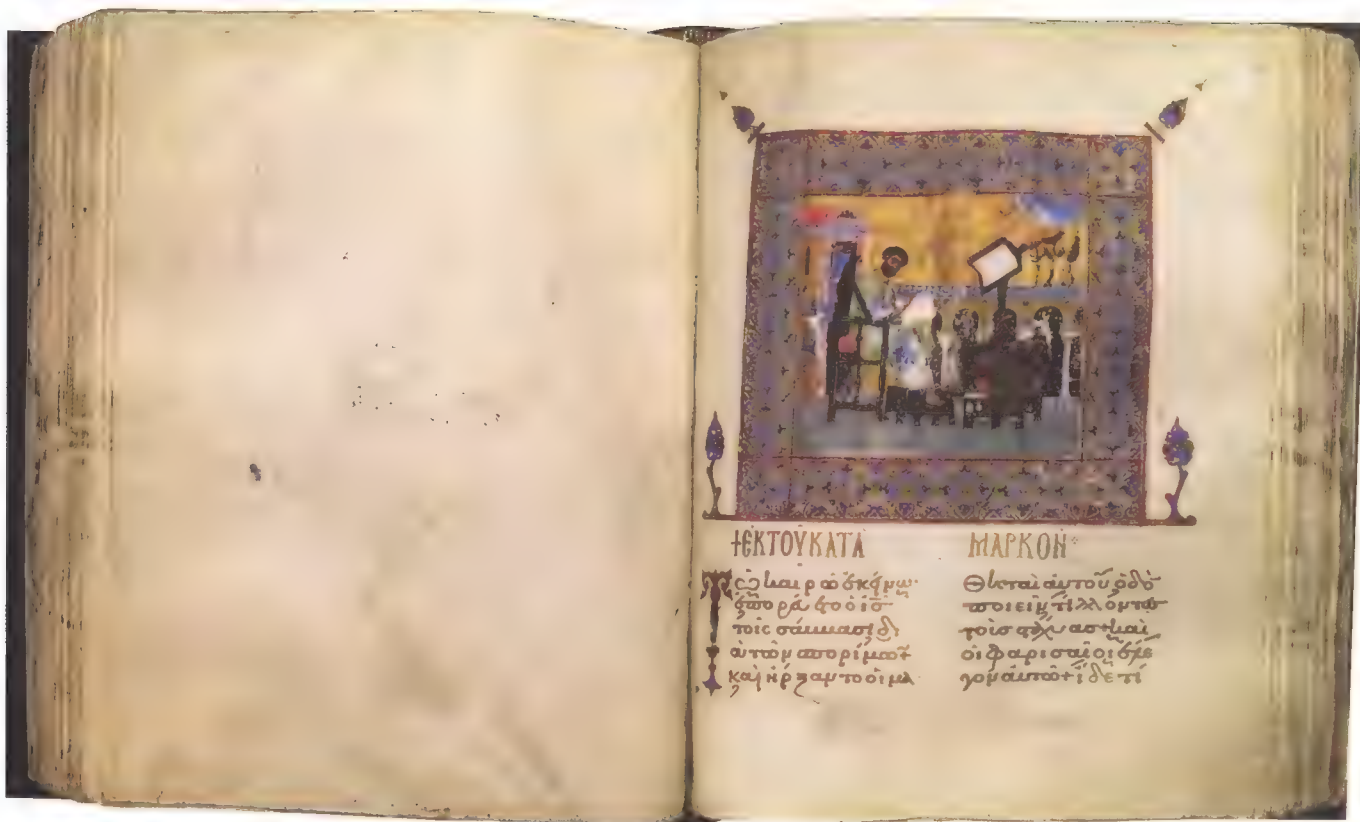 + ἘΚ ΤΟΥ ΚΑΤΑ ΜΑΡΚΟΝ
Τῶ καιρῶ ἐκείνω
ἐπορεύετο ὁ ἰσ
τοῖς σάββασι δι
ὰ τῶν σπορίμων
καὶ ἤρξαντο οἱ μα
θηταὶ αὐτοῦ ὁδὸ
ποιεῖν τίλλοντεσ
τοὺσ στάχυασ + καὶ
οἱ φαρισαῖοι ἔλε
γον αὐτῶ + ἴδε τί